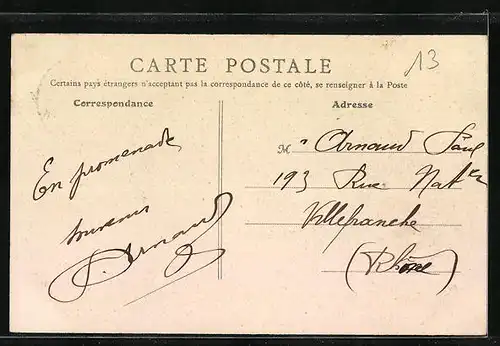 CARTE POSTALE
13
Certains pays étrangers n'acceptant pas la correspondance de ce côté, se renseigner à la Poste
Correspondance
Adresse
En promenade
souvenir
Arnaud
M r Arnaud Paul
193 Rue Natle
Villefranche
(Rhône)